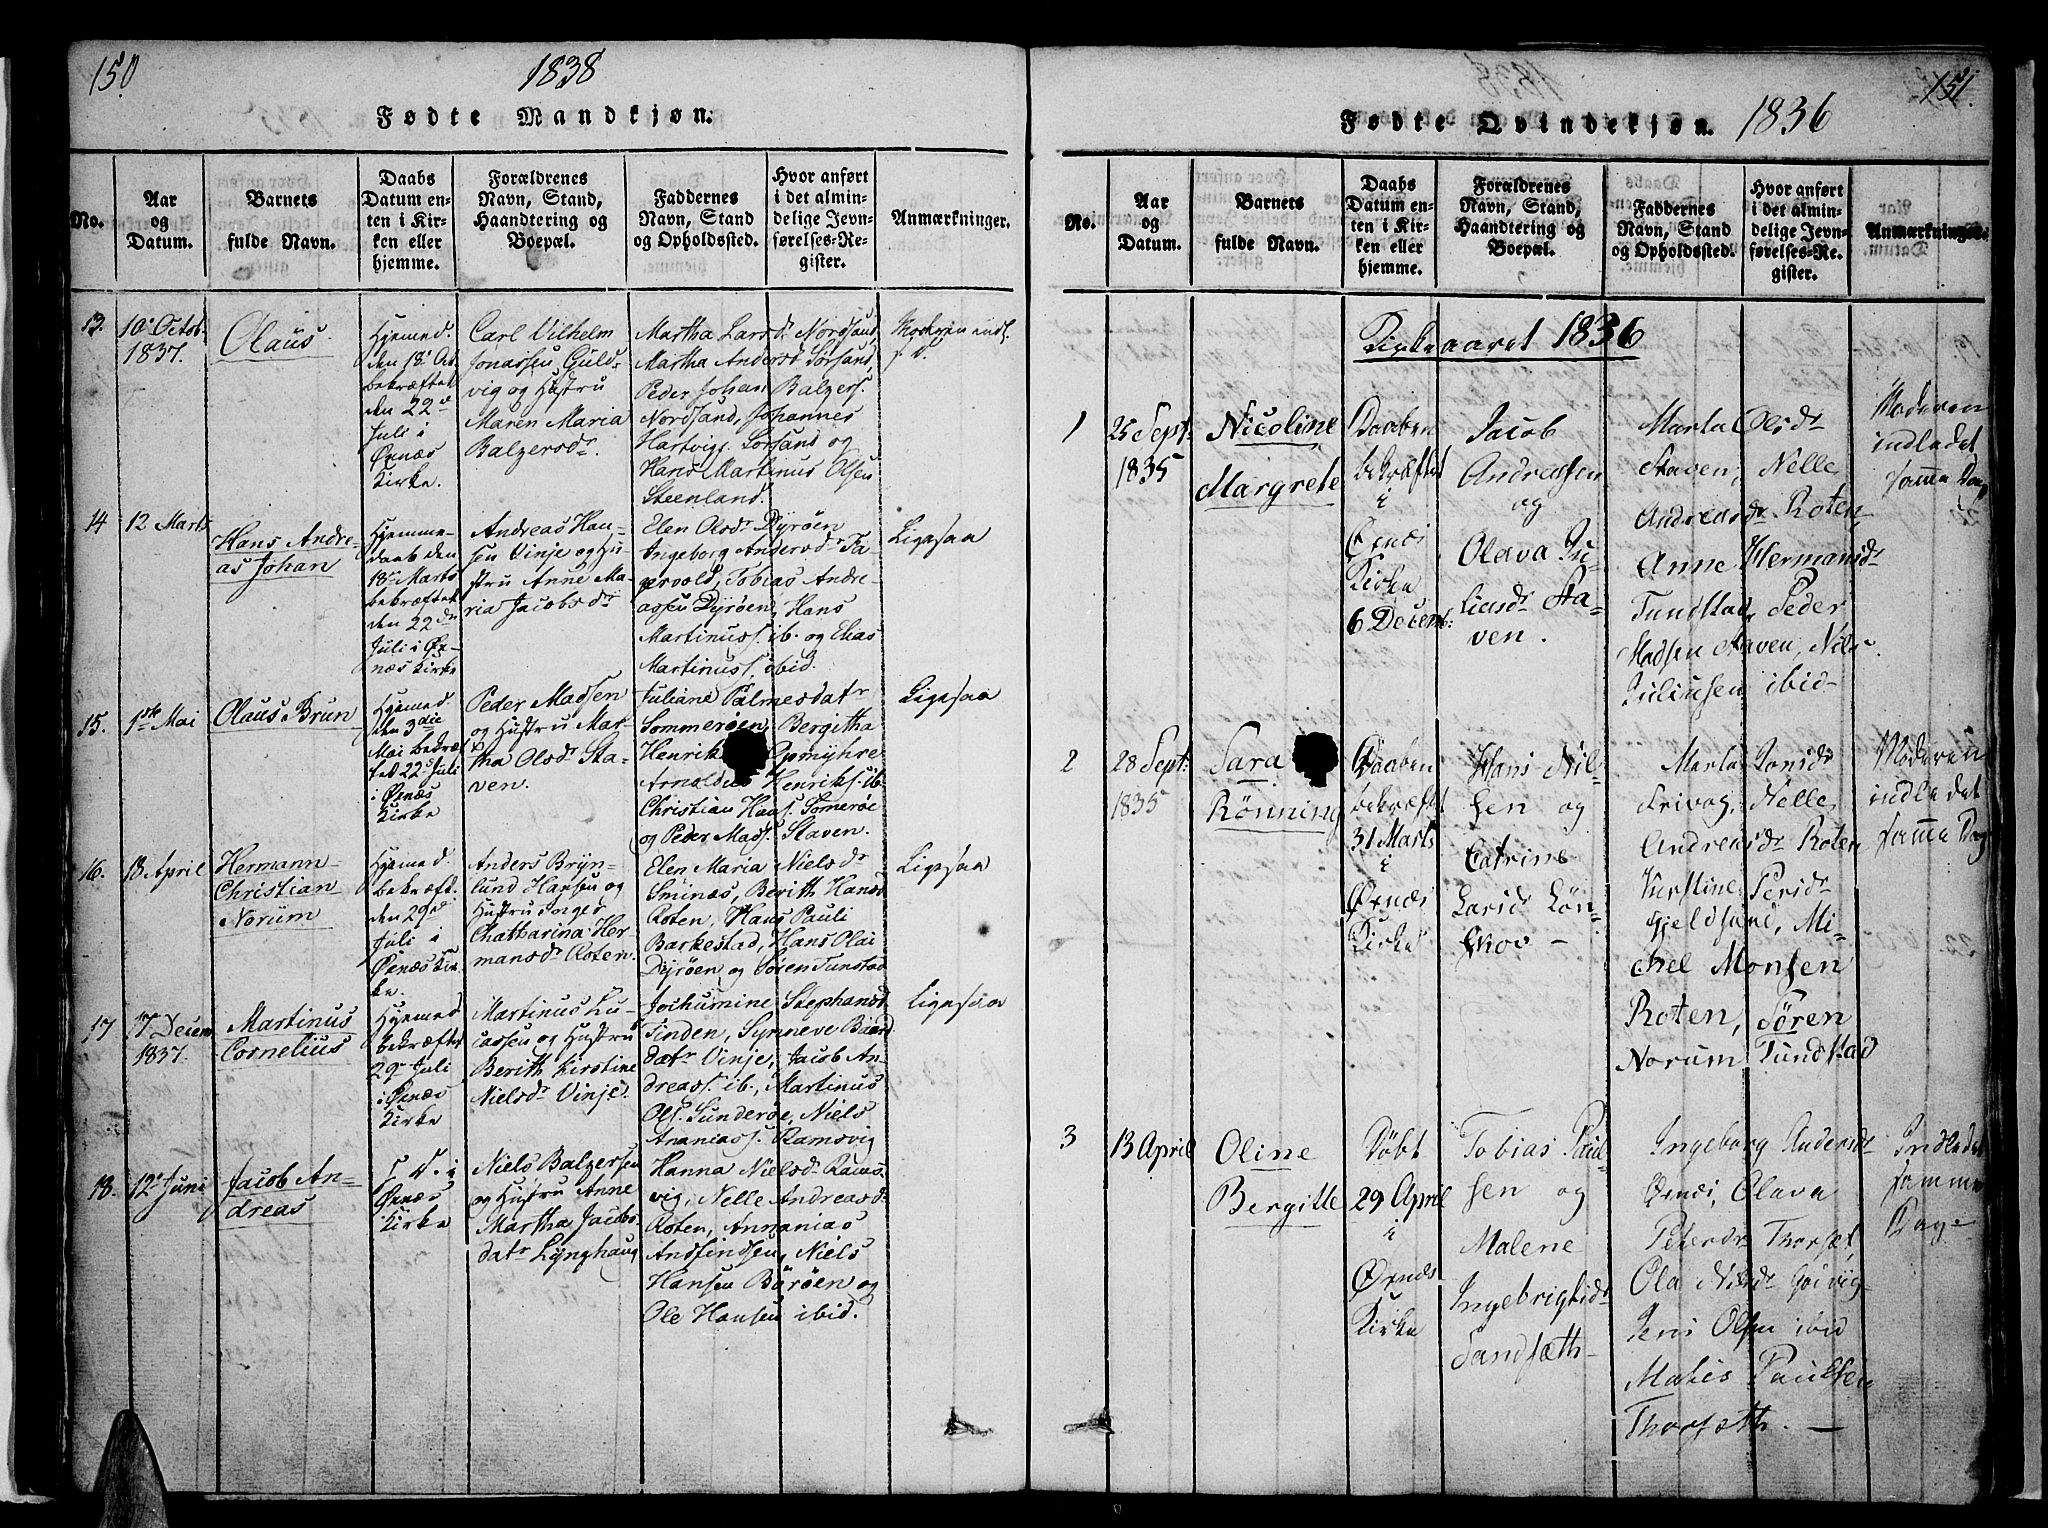 150
1838
Fødte Mandkjøn.
No.
Aar
og
Datum.
Barnets
fulde Navn.
Daabs
Datum en-
ten i Kir-
ken eller
hjemme.
Forældrenes
Navn, Stand,
Haandtering og
Boepæl.
Faddernes
Navn, Stand
og Opholdssted.
Hvor anført
i det almin-
delige Jevn-
førelses-Re-
gister.
Anmærkninger.
13.
10de Octob.
1837.
Olaus
Hjemmed.
den 18de
bekræftet
den 22de
Juli i
Øxnæs
Kirke.
Carl Vilhelm
Jonassen Guld-
vig og Hustru
Maren Maria
Balzersdr.
Martha Larsdr Nordsand,
Martha Andersdr Sørsand,
Peder Johan Balzers.
Nordsand, Johannes
Hartvigs. Sørsand og
Hans Martinus Olsen
Steenland.
Moderen indl.
s. D.
14
12 Marts
Hans Andre-
as Johan
Hjemme-
daab den
18de Marts
bekræftet
den 22de
Juli i Øx-
næs Kirke
Andreas Han-
sen Vinje og Hu-
stru Anne Ma-
ria Jacobsdr
Elen Olsdr Dyrøen
Ingeborg Andersdr
Tobias Andre-
assen Dyrøen, Hans
Martinuss. ib. og Elias
Martinuss. ibid.
Ligesaa
15.
1ste Mai
Olaus Brun
Hjemmed.
den 3die
Mai bekræf-
tet 22de Juli
i Øxnæs
Kirke
Peder Madsen
og Hustru Mar-
tha Olsdr Sta-
ven.
Juliane Palmesdatr
Sommerøen, Bergitha
Henriks Opmyhre
Arnoldus Henriks. ib.
Christian Hans. Somerøe
og Peder Mads. Staven.
Ligesaa
16.
18 April
Hermann
Christian
Norum
Hjemmed.
bekræft.
den 29de
Juli i
Øxnæs Kir-
ke.
Anders Bryn-
lund Hansen og
Hustru Inger
Chatharina Her-
mansdr Roten.
Elen Maria Nielsdr
Smines, Berith Hansdr
Roten, Hans Pauli
Barkestad, Hans Olai
Dyrøen og Søren Tunstad
Ligesaa
17
17 Decem
1837.
Martinus
Cornelius
Hjemmed
bekræftet
29de Juli
i Øxnæs
Kirke
Martinus Lu-
cassen og Hustru
Berith Kirstine
Nielsdr Vinje.
Jochumine Stephansd.
Tinden, Synneve Baard
datr Vinje, Jacob An-
dreass. ib., Martinus
Ols. Sunderøe, Niels
Ananiass. Ramsvig
Ligesaa
18.
12te Juni
Jacob An-
dreas
S. D. i
Øxnæs
Kirke
Niels Balzersen
og Hustru Anne
Martha Jacobs-
datr Lynghaug
Hanna Nielsdr Rams-
vig, Nelle Andreasd.
Roten, Annanias
Andfindsen, Niels
Hansen Barøen og
Ole Hansen ibid.
151.
Fødte Qvindekjøn. 1836
No.
Aar
og
Datum.
Barnets
fulde Navn.
Daabs
Datum en-
ten i Kir-
ken eller
hjemme.
Forældrenes
Navn, Stand,
Haandtering og
Boepæl.
Faddernes
Navn, Stand
og Opholdssted.
Hvor anført
i det almin-
delige Jevn-
førelses-Re-
gister.
Anmærkninger.
Kirkeaaret 1836
1
25 Sept.
1835
Nicoline
Margrete
Daaben
bekræftet
i
Øxnæs
Kirke
6 Decemb:
Jacob
Andreassen
og
Olava Ju-
liusdr Sta-
ven.
Marta Olsdr
Staven, Nelle
Andreasdr Roten
Anne Hermansdr
Tundstad, Peder
Madsen Staven, Nils
Juliussen ibid-
Moderen
indledet
samme Dag
2
28 Sept:
1835
Sara
Rönning
Daaben
bekræftet
31 Marts
i
Øxnæs
Kirke
Hans Nil-
sen og
Catrine
Larsdr Løn-
skov -
Marta Jonsdr
Frivog, Nelle
Andreasdr Roten
Kirstine Persdr
Gjeldsand, Mi-
chel Monsen
Roten, Søren
Norum Tundstad
Moderen
indledet
samme Dag
3
13 April
Oline
Bergitte
Døbt
29 April
i
Øxnæs
Kirke
Tobias Paul-
sen og
Malene
Ingebrigtsdr
Sandsæth-
Ingeborg Andersdr
Øxnæs, Olava
Petersdr Thorsæt,
Ola Nilsdr
Jens Olsen ibid
Matis Paulsen
Thorsæth. -
Indledet
samme
Dag-